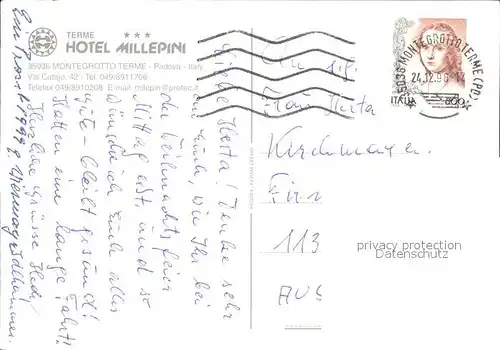 TERME ★★★
HOTEL MILLEPINI
35036 MONTEGROTTO TERME - Padova - Italy
Via Catajo, 42 - Tel. 049/8911766
Telefax 049/8910208 E-mail milepin@protec.it
Liebe Herta! Denke sehr
an Euch, wie Ihr bei
der Weihnachtsfeier
Mittag eßt, und so
wünsche ich Euch alles
gute - bleibt gesund!
Hatten eine lange Fahrt!
Herzliche Grüsse
1999
35036 MONTEGROTTO TERME (PD)
24.12.98
ITALIA 800
Herta
Kirchmayer
113
AUS
privacy protection
Datenschutz